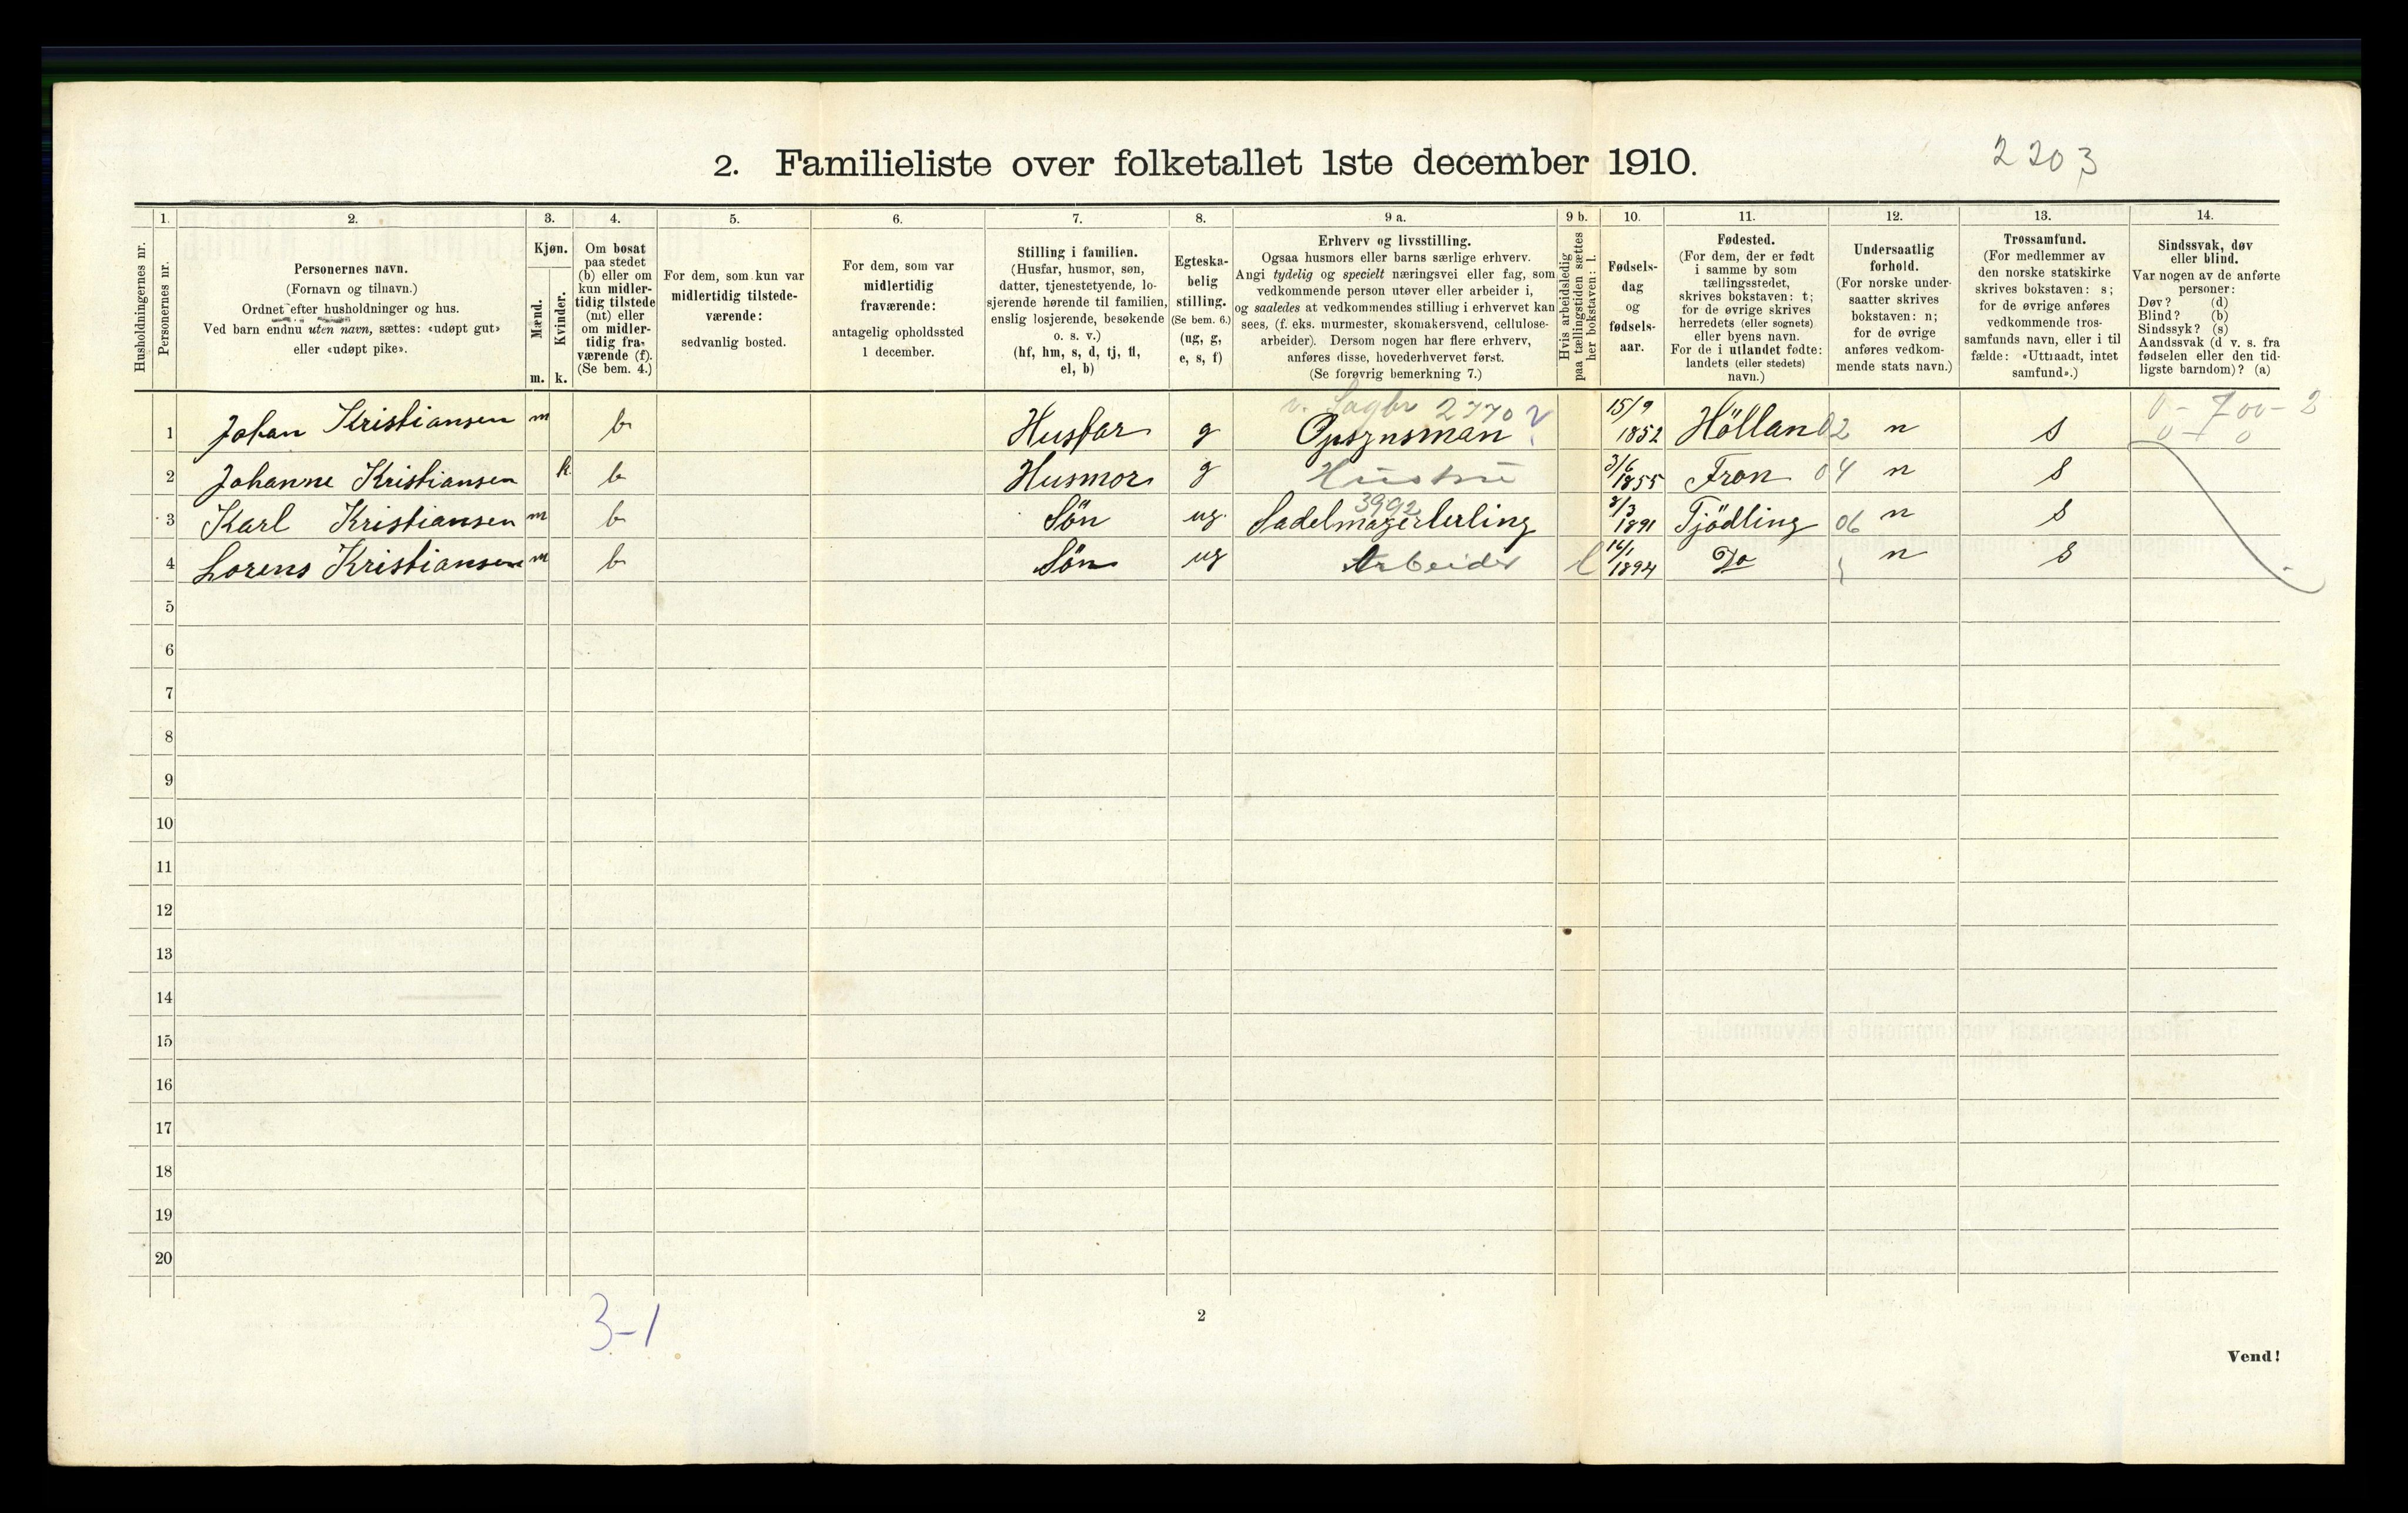 2. Familieliste over folketallet 1ste december 1910.
2203
1. 2. 3. 4. 5. 6. 7. 8. 9 a. 9 b. 10. 11. 12. 13. 14.
Husholdningernes nr.
Personernes nr.
Personernes navn.
(Fornavn og tilnavn.)
Ordnet efter husholdninger og hus.
Ved barn endnu uten navn, sættes: «udøpt gut»
eller «udøpt pike».
Kjøn.
Mænd.
Kvinder.
m. k.
Om bosat
paa stedet
(b) eller om
kun midler-
tidig tilstede
(mt) eller
om midler-
tidig fra-
værende (f).
(Se bem. 4.)
For dem, som kun var
midlertidig tilstede-
værende:
sedvanlig bosted.
For dem, som var
midlertidig
fraværende:
antagelig opholdssted
1 december.
Stilling i familien.
(Husfar, husmor, søn,
datter, tjenestetyende, lo-
sjerende hørende til familien,
enslig losjerende, besøkende
o. s. v.)
(hf, hm, s, d, tj, fl,
el, b)
Egteska-
belig
stilling.
(Se bem. 6.)
(ug, g,
e, s, f)
Erhverv og livsstilling.
Ogsaa husmors eller barns særlige erhverv.
Angi tydelig og specielt næringsvei eller fag, som
vedkommende person utøver eller arbeider i,
og saaledes at vedkommendes stilling i erhvervet kan
sees, (f. eks. murmester, skomakersvend, cellulose-
arbeider). Dersom nogen har flere erhverv,
anføres disse, hovederhvervet først.
(Se forøvrig bemerkning 7.)
Hvis arbeidsledig
paa tællingstiden sættes
her bokstaven: l.
Fødsels-
dag
og
fødsels-
aar.
Fødested.
(For dem, der er født
i samme by som
tællingsstedet,
skrives bokstaven: t;
for de øvrige skrives
herredets (eller sognets)
eller byens navn.
For de i utlandet fødte:
landets (eller stedets)
navn.)
Undersaatlig
forhold.
(For norske under-
saatter skrives
bokstaven: n;
for de øvrige
anføres vedkom-
mende stats navn.)
Trossamfund.
(For medlemmer av
den norske statskirke
skrives bokstaven: s;
for de øvrige anføres
vedkommende tros-
samfunds navn, eller i til
fælde: «Uttraadt, intet
samfund».)
Sindssvak, døv
eller blind.
Var nogen av de anførte
personer:
Døv? (d)
Blind? (b)
Sindssyk? (s)
Aandssvak (d v. s. fra
fødselen eller den tid-
ligste barndom)? (a)
v. Sagbr 2770 0 - 700 - 2
1 Johan Kristiansen m b Husfar g Opsynsman ? 15/9 1852 Höllan 02 n s
2 Johanne Kristiansen k b Husmor g Hustru 3/6 1855 Fron 04 n s
3992
3 Karl Kristiansen m b Sön ug Sadelmagerlerling 8/3 1891 Tjödling 06 n s
4 Lorens Kristiansen m b Sön ug Arbeider l 16/1 1894 Do n s
5
6
7
8
9
10
11
12
13
14
15
16
17
18
19
20
3-1
2
Vend!